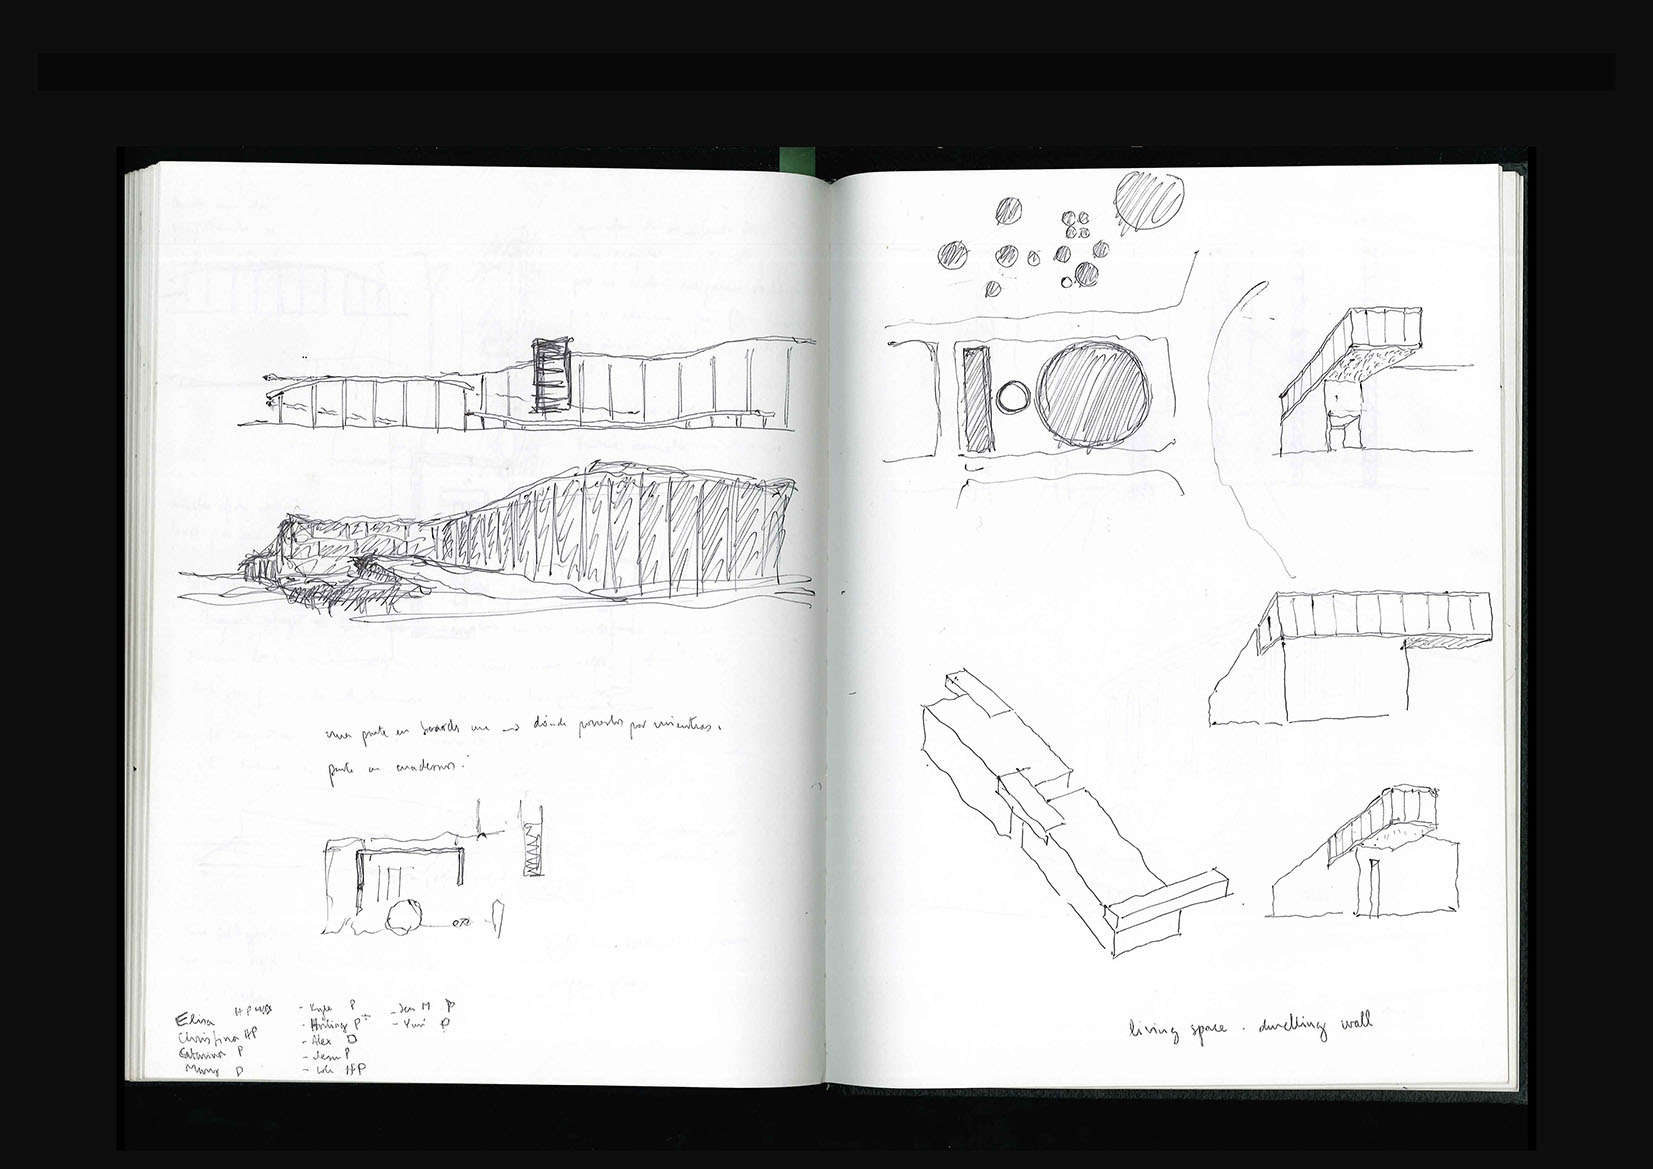 una parte en boards une → dónde ponerlos por mientras.
parte en cuadernos.
Elisa HP
Christina HP
Catarina P
Manny D
- Kyle P
P+
- Alex D
- Jesus P
- Lole HP
- Jean M P
- Yuri P
living space . dwelling wall